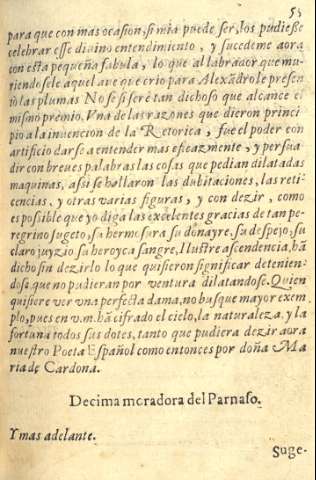 53
para que con mas ocasion, si mia puede ser, los pudiesse
celebrar esse diuino entendimiento, y sucedeme aora
con esta pequeña fabula, lo que al labrador que mu-
riendosele aquel aue que crio para Alexãdro le presen
tò las plumas No se si serè tan dichoso que alcance el
mismo premio. Vna de las razones que dieron princi
pio a la inuencion de la Retorica, fue el poder con
artificio darse a entender mas eficazmente, y persua
dir con breues palabras las cosas que pedian dilatadas
maquinas, assi se hallaron las dubitaciones, las reti-
cencias, y otras varias figuras, y con dezir, como
es posible que yo diga las excelentes gracias de tan pe-
regrino sugeto, su hermosura su donayre, su despejo, su
claro juyzio su heroyca sangre, Ilustre ascendencia, hã
dicho sin dezirlo lo que quisieron significar detenien-
dose que no pudieran por ventura dilatandose. Quien
quisiere ver vna perfecta dama, no busque mayor exem
plo, pues en v.m. hã cifrado el cielo, la naturaleza, y la
fortuna todos sus dotes, tanto que pudiera dezir aora
nuestro Poeta Español como entonces por doña Ma
ria de Cardona.
Decima moradora del Parnaso.
Y mas adelante.
Suge-